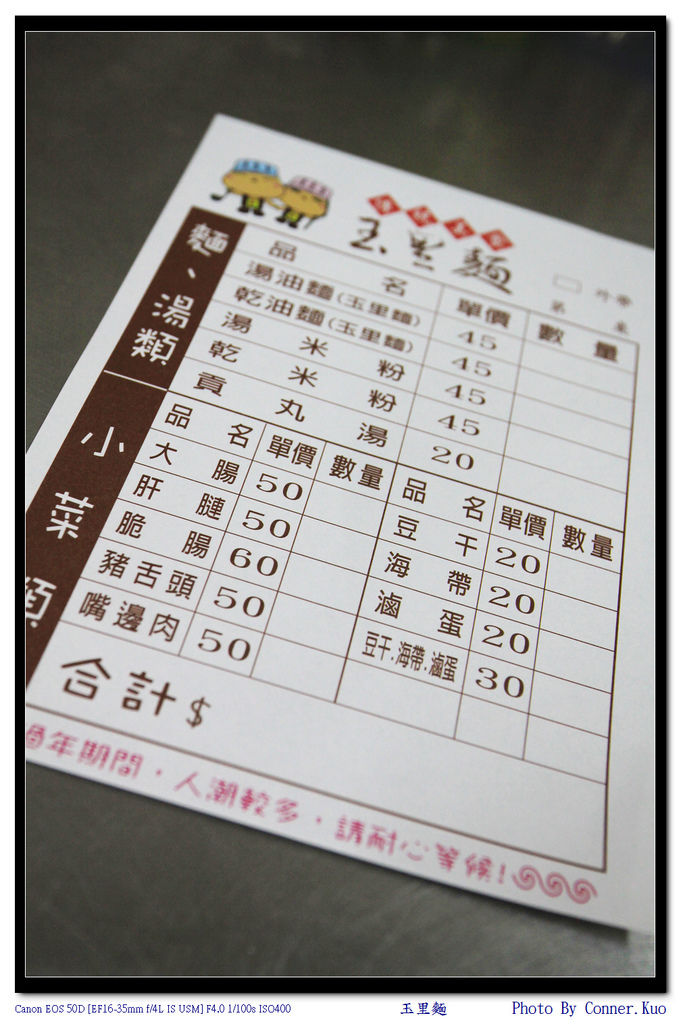 傳統美食
玉里麵
外帶
第 桌
麵、湯類
品名 單價 數量
湯油麵(玉里麵) 45
乾油麵(玉里麵) 45
湯米粉 45
乾米粉 45
貢丸湯 20
小菜類
品名 單價 數量
大腸 50
肝腱 50
脆腸 60
豬舌頭 50
嘴邊肉 50
品名 單價 數量
豆干 20
海帶 20
滷蛋 20
豆干.海帶.滷蛋 30
合計$
過年期間,人潮較多,請耐心等候!
Canon EOS 50D [EF16-35mm f/4L IS USM] F4.0 1/100s ISO400
玉里麵
Photo By Conner.Kuo